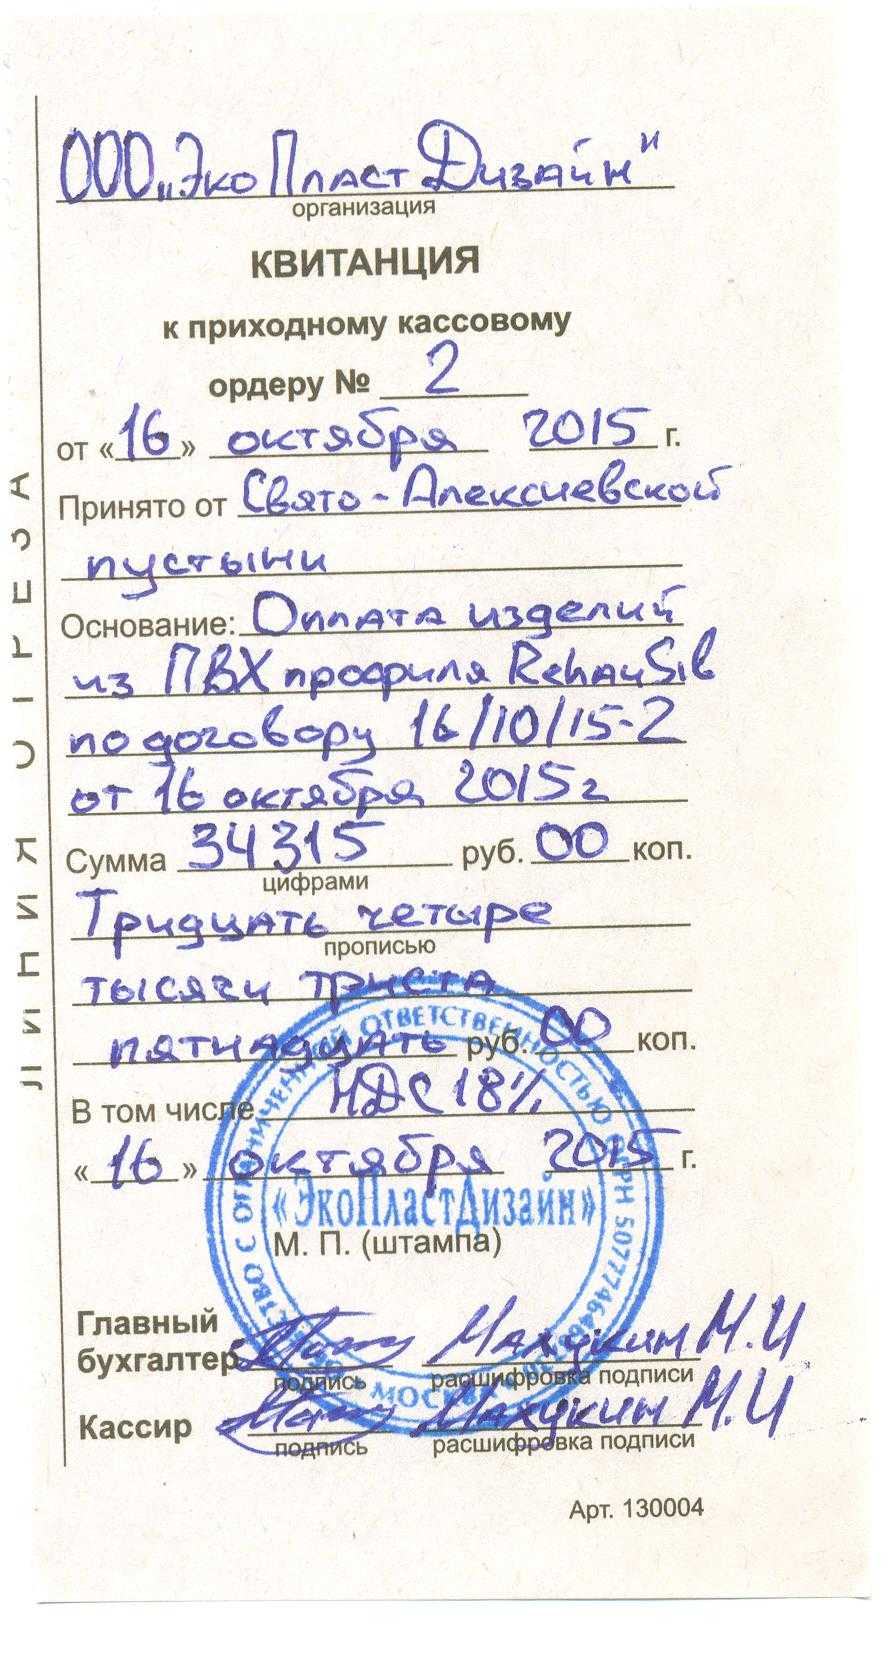 ООО „ЭкоПластДизайн"
организация
КВИТАНЦИЯ
к приходному кассовому
ордеру № 2
от «16» октября 2015 г.
Принято от Свято-Алексиевской
пустыни
Основание: Оплата изделий
из ПВХ профиля RehauSib
по договору 16/10/15-2
от 16 октября 2015г
Сумма 34315 руб. 00 коп.
цифрами
Тридцать четыре
прописью
тысячи триста
пятнадцать руб. 00 коп.
В том числе НДС 18%
«16» октября 2015 г.
«ЭкоПластДизайн»
М. П. (штампа)
Главный
бухгалтер Махукин М.И
подпись расшифровка подписи
Кассир Махукин М.И
подпись расшифровка подписи
Арт. 130004
ЛИНИЯ ОТРЕЗА
ОБЩЕСТВО С ОГРАНИЧЕННОЙ ОТВЕТСТВЕННОСТЬЮ
МОСКВА